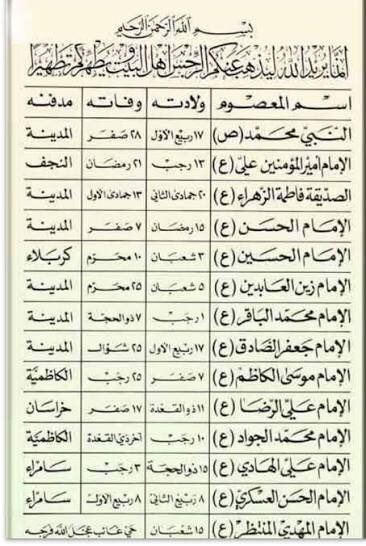 بسم الله الرحمن الرحيم
إنما يريد الله ليذهب عنكم الرجس أهل البيت ويطهركم تطهيرا
اسم المعصوم ولادته وفاته مدفنه
النبي محمد (ص) ١٧ ربيع الأول ٢٨ صفر المدينة
الإمام أمير المؤمنين علي (ع) ١٣ رجب ٢١ رمضان النجف
الصديقة فاطمة الزهراء (ع) ٢٠ جمادى الثاني ١٣ جمادى الأول المدينة
الإمام الحسن (ع) ١٥ رمضان ٧ صفر المدينة
الإمام الحسين (ع) ٣ شعبان ١٠ محرم كربلاء
الإمام زين العابدين (ع) ٥ شعبان ٢٥ محرم المدينة
الإمام محمد الباقر (ع) ١ رجب ٧ ذو الحجة المدينة
الإمام جعفر الصادق (ع) ١٧ ربيع الأول ٢٥ شوال المدينة
الإمام موسى الكاظم (ع) ٧ صفر ٢٥ رجب الكاظمية
الإمام علي الرضا (ع) ١١ ذو القعدة ١٧ صفر خراسان
الإمام محمد الجواد (ع) ١٠ رجب آخر ذي القعدة الكاظمية
الإمام علي الهادي (ع) ١٥ ذو الحجة ٣ رجب سامراء
الإمام الحسن العسكري (ع) ٨ ربيع الثاني ٨ ربيع الأول سامراء
الإمام المهدي المنتظر (ع) ١٥ شعبان حي غائب عجل الله فرجه